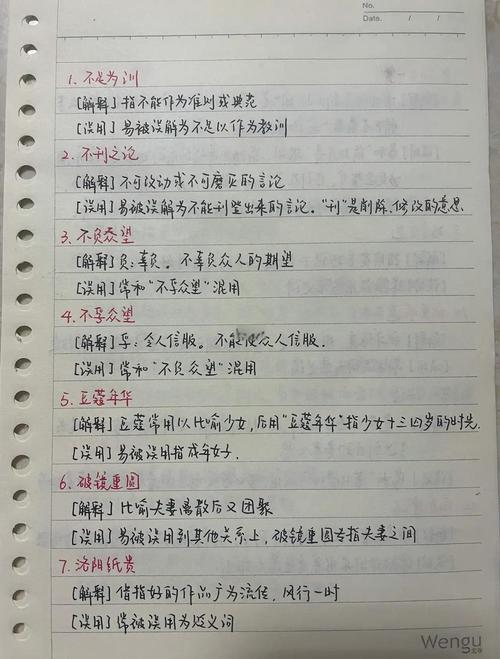 No.
Date. / /
1. 不足为训
[解释] 指不能作为准则或典范
[误用] 易被误解为不足以作为教训
2. 不刊之论
[解释] 不可改动或不可磨灭的言论
[误用] 易被误解为不能刊登出来的言论。"刊"是削除、修改的意思.
3. 不负众望
[解释] 负:辜负。不辜负众人的期望
[误用] 常和"不孚众望"混用
4. 不孚众望
[解释] 孚:令人信服。不能使众人信服.
[误用] 常和"不负众望"混用
5. 豆蔻年华
[解释] 豆蔻常用以比喻少女,后用"豆蔻年华"指少女十三四岁的时光.
[误用] 易被误用指成年女子.
6. 破镜重圆
[解释] 比喻夫妻离散后又团聚
[误用] 易被误用到其他关系上,破镜重圆专指夫妻之间
7. 洛阳纸贵
[解释] 借指好的作品广为流传,风行一时
[误用] 常被误用为贬义词
Wengu